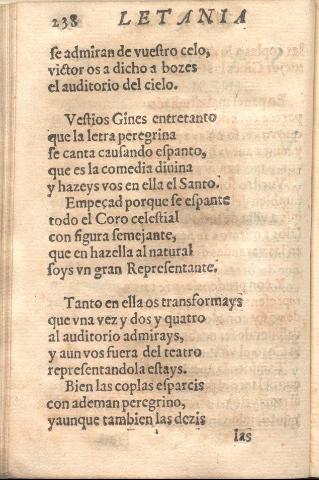 238 LETANIA
se admiran de vuestro celo,
victor os a dicho a bozes
el auditorio del cielo.
Vestios Gines entretanto
que la letra peregrina
se canta causando espanto,
que es la comedia diuina
y hazeys vos en ella el Santo.
Empeçad porque se espante
todo el Coro celestial
con figura semejante,
que en hazella al natural
soys vn gran Representante.
Tanto en ella os transformays
que vna vez y dos y quatro
al auditorio admirays,
y aun vos fuera del teatro
representandola estays.
Bien las coplas esparcis
con ademan peregrino,
yaunque tambien las dezis
las